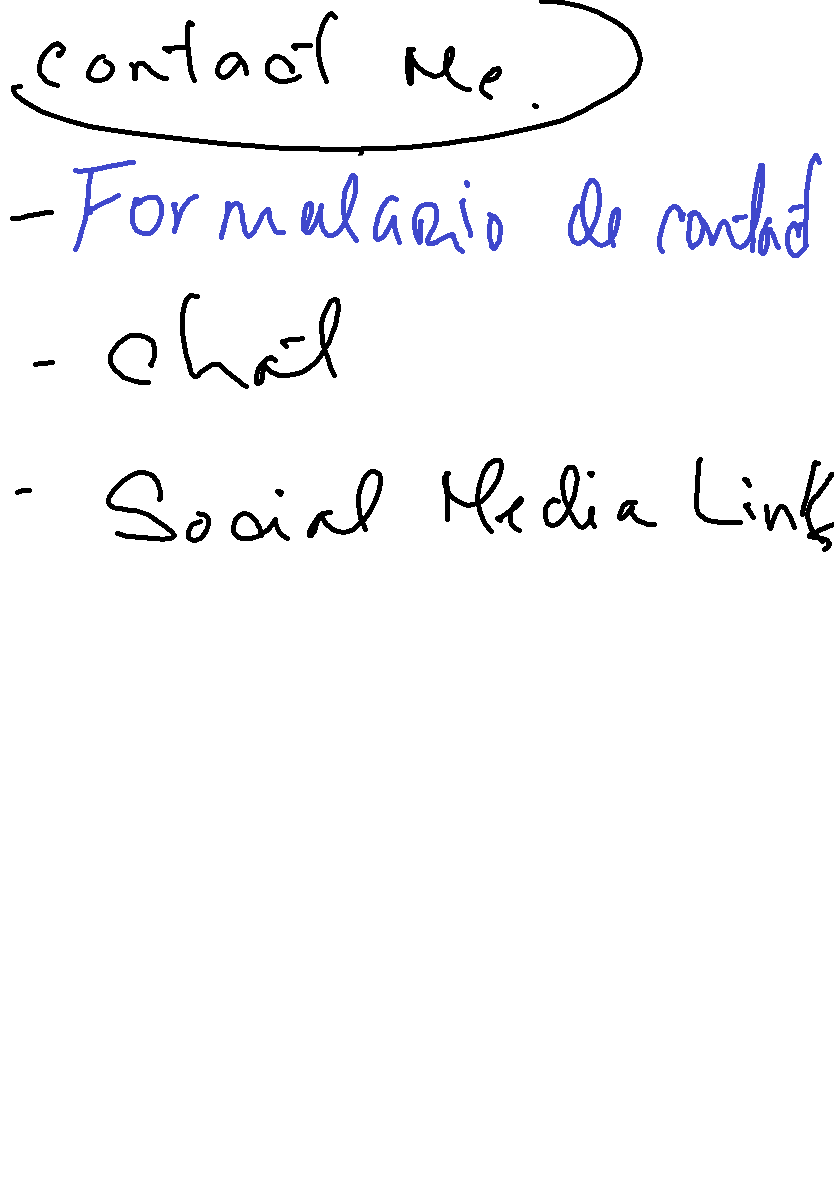 Contact Me.
- Formulario de contact
- Chat
- Social Media Links